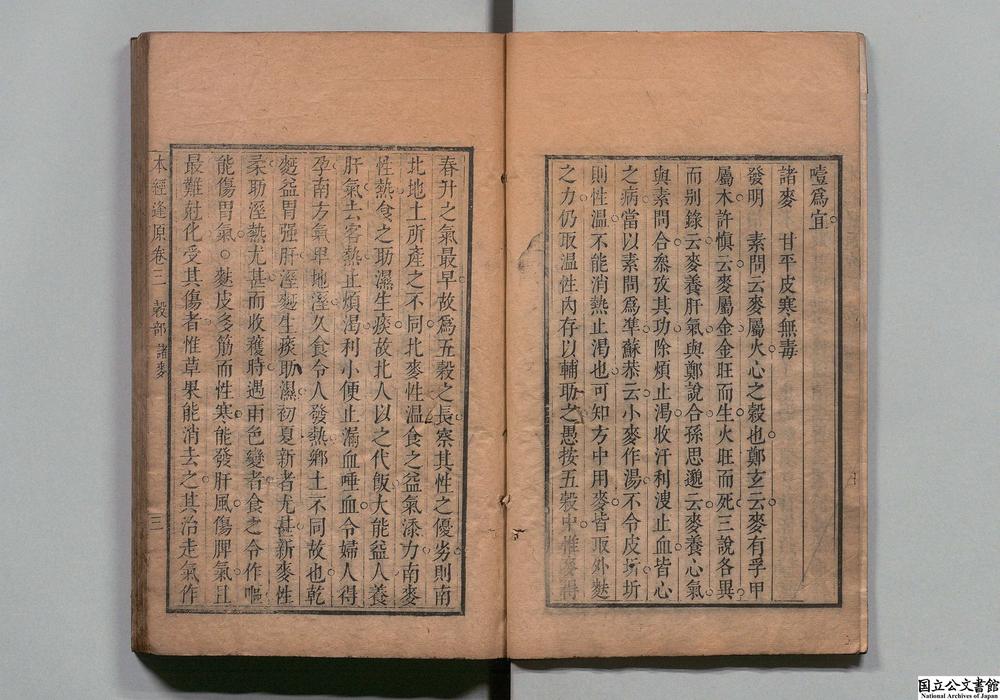 噎爲宜
諸麥　甘平皮寒無毒
發明　素問云麥屬火心之穀也鄭玄云麥有孚甲
屬木許慎云麥屬金金旺而生火旺而死三說各異
而别錄云麥養肝氣與鄭說合孫思邈云麥養心氣
與素問合叅攷其功除煩止渴收汗利溲止血皆心
之病當以素問爲準蘇恭云小麥作湯不令皮坼坼
則性溫不能消熱止渴也可知方中用麥皆取外麩
之力仍取溫性內存以輔助之愚按五穀中惟麥得
春升之氣最早故爲五穀之長察其性之優劣則南
北地土所產之不同北麥性溫食之益氣添力南麥
性熱食之助濕生痰故北人以之代飯大能益人養
肝氣去客熱止煩渴利小便止漏血唾血令婦人得
孕南方氣卑地溼久食令人發熱鄉土不同故也乾
麪益胃强肝溼麪生痰助濕初夏新者尤甚新麥性
柔助溼熱尤甚而收穫時遇雨色變者食之令作嘔
能傷胃氣○麩皮多筋而性寒能發肝風傷脾氣且
最難尅化受其傷者惟草果能消去之其治走氣作
本經逢原卷三　穀部　諸麥　三
国立公文書館
National Archives of Japan